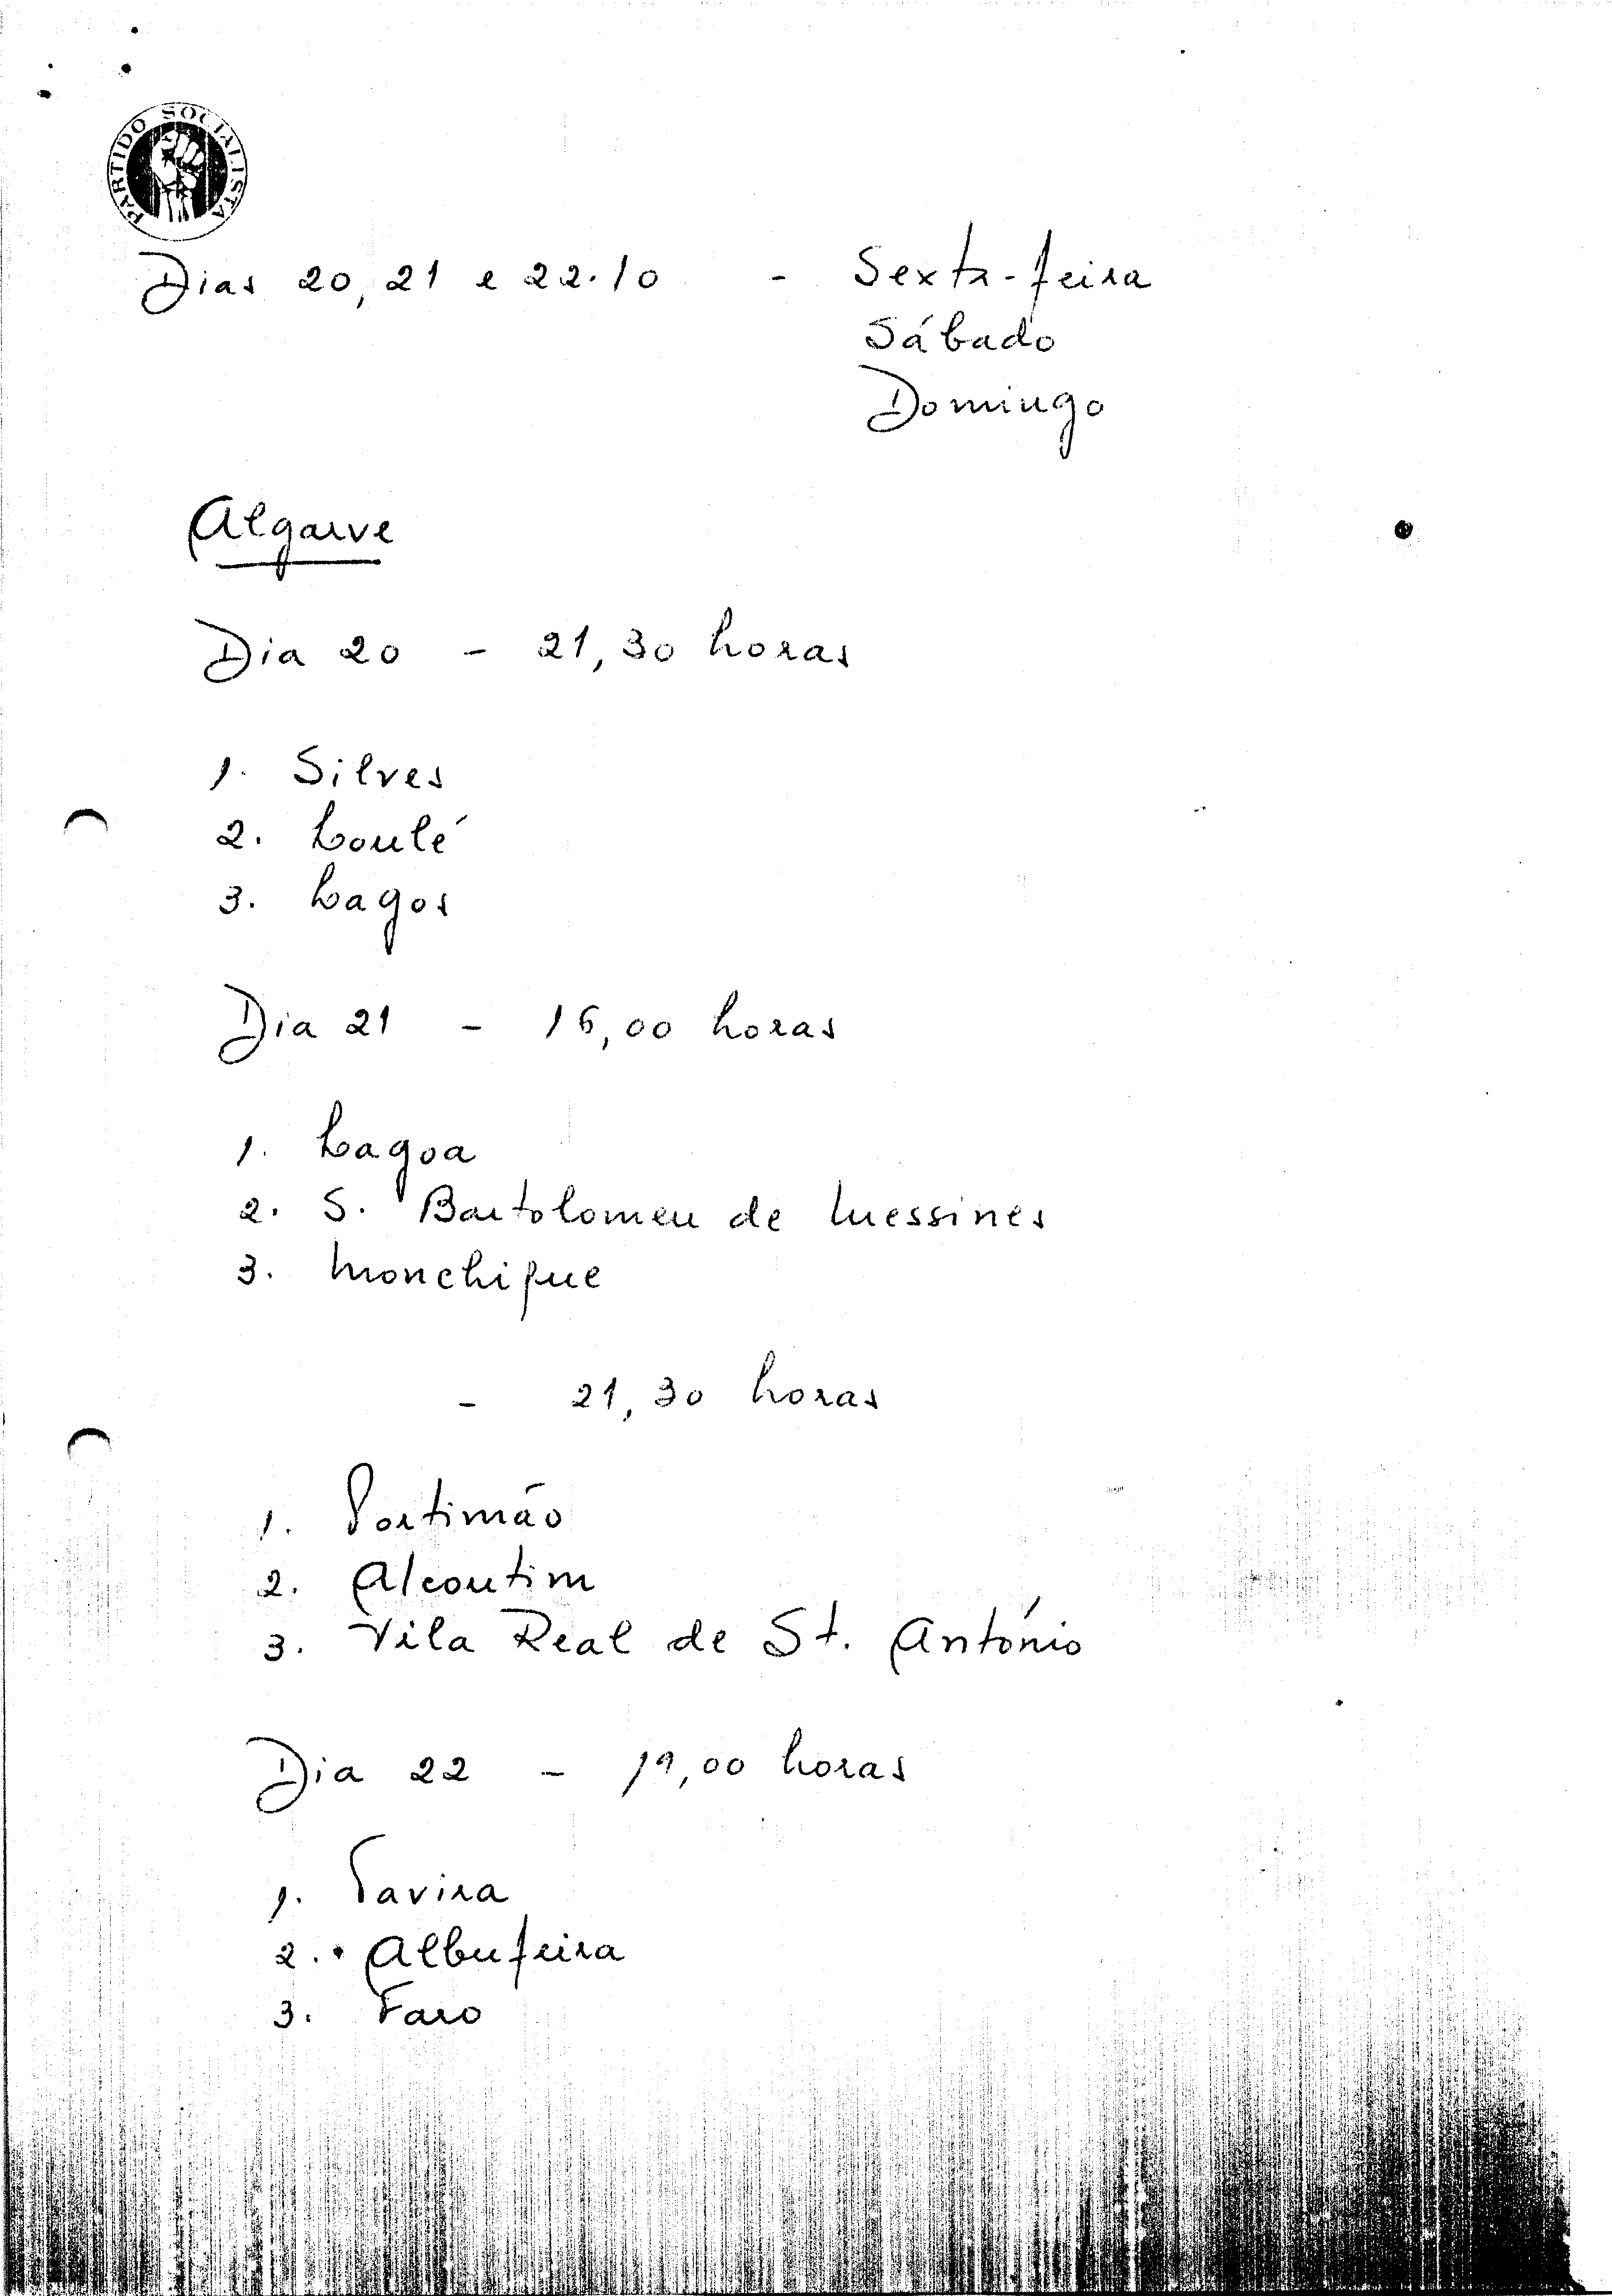 PARTIDO SOCIALISTA
Dias 20, 21 e 22.10 - Sexta-feira
Sábado
Domingo
Algarve
Dia 20 - 21,30 horas
1. Silves
2. Loulé
3. Lagos
Dia 21 - 16,00 horas
1. Lagoa
2. S. Bartolomeu de Messines
3. Monchique
- 21,30 horas
1. Portimão
2. Alcoutim
3. Vila Real de St. António
Dia 22 - 19,00 horas
1. Tavira
2. Albufeira
3. Faro